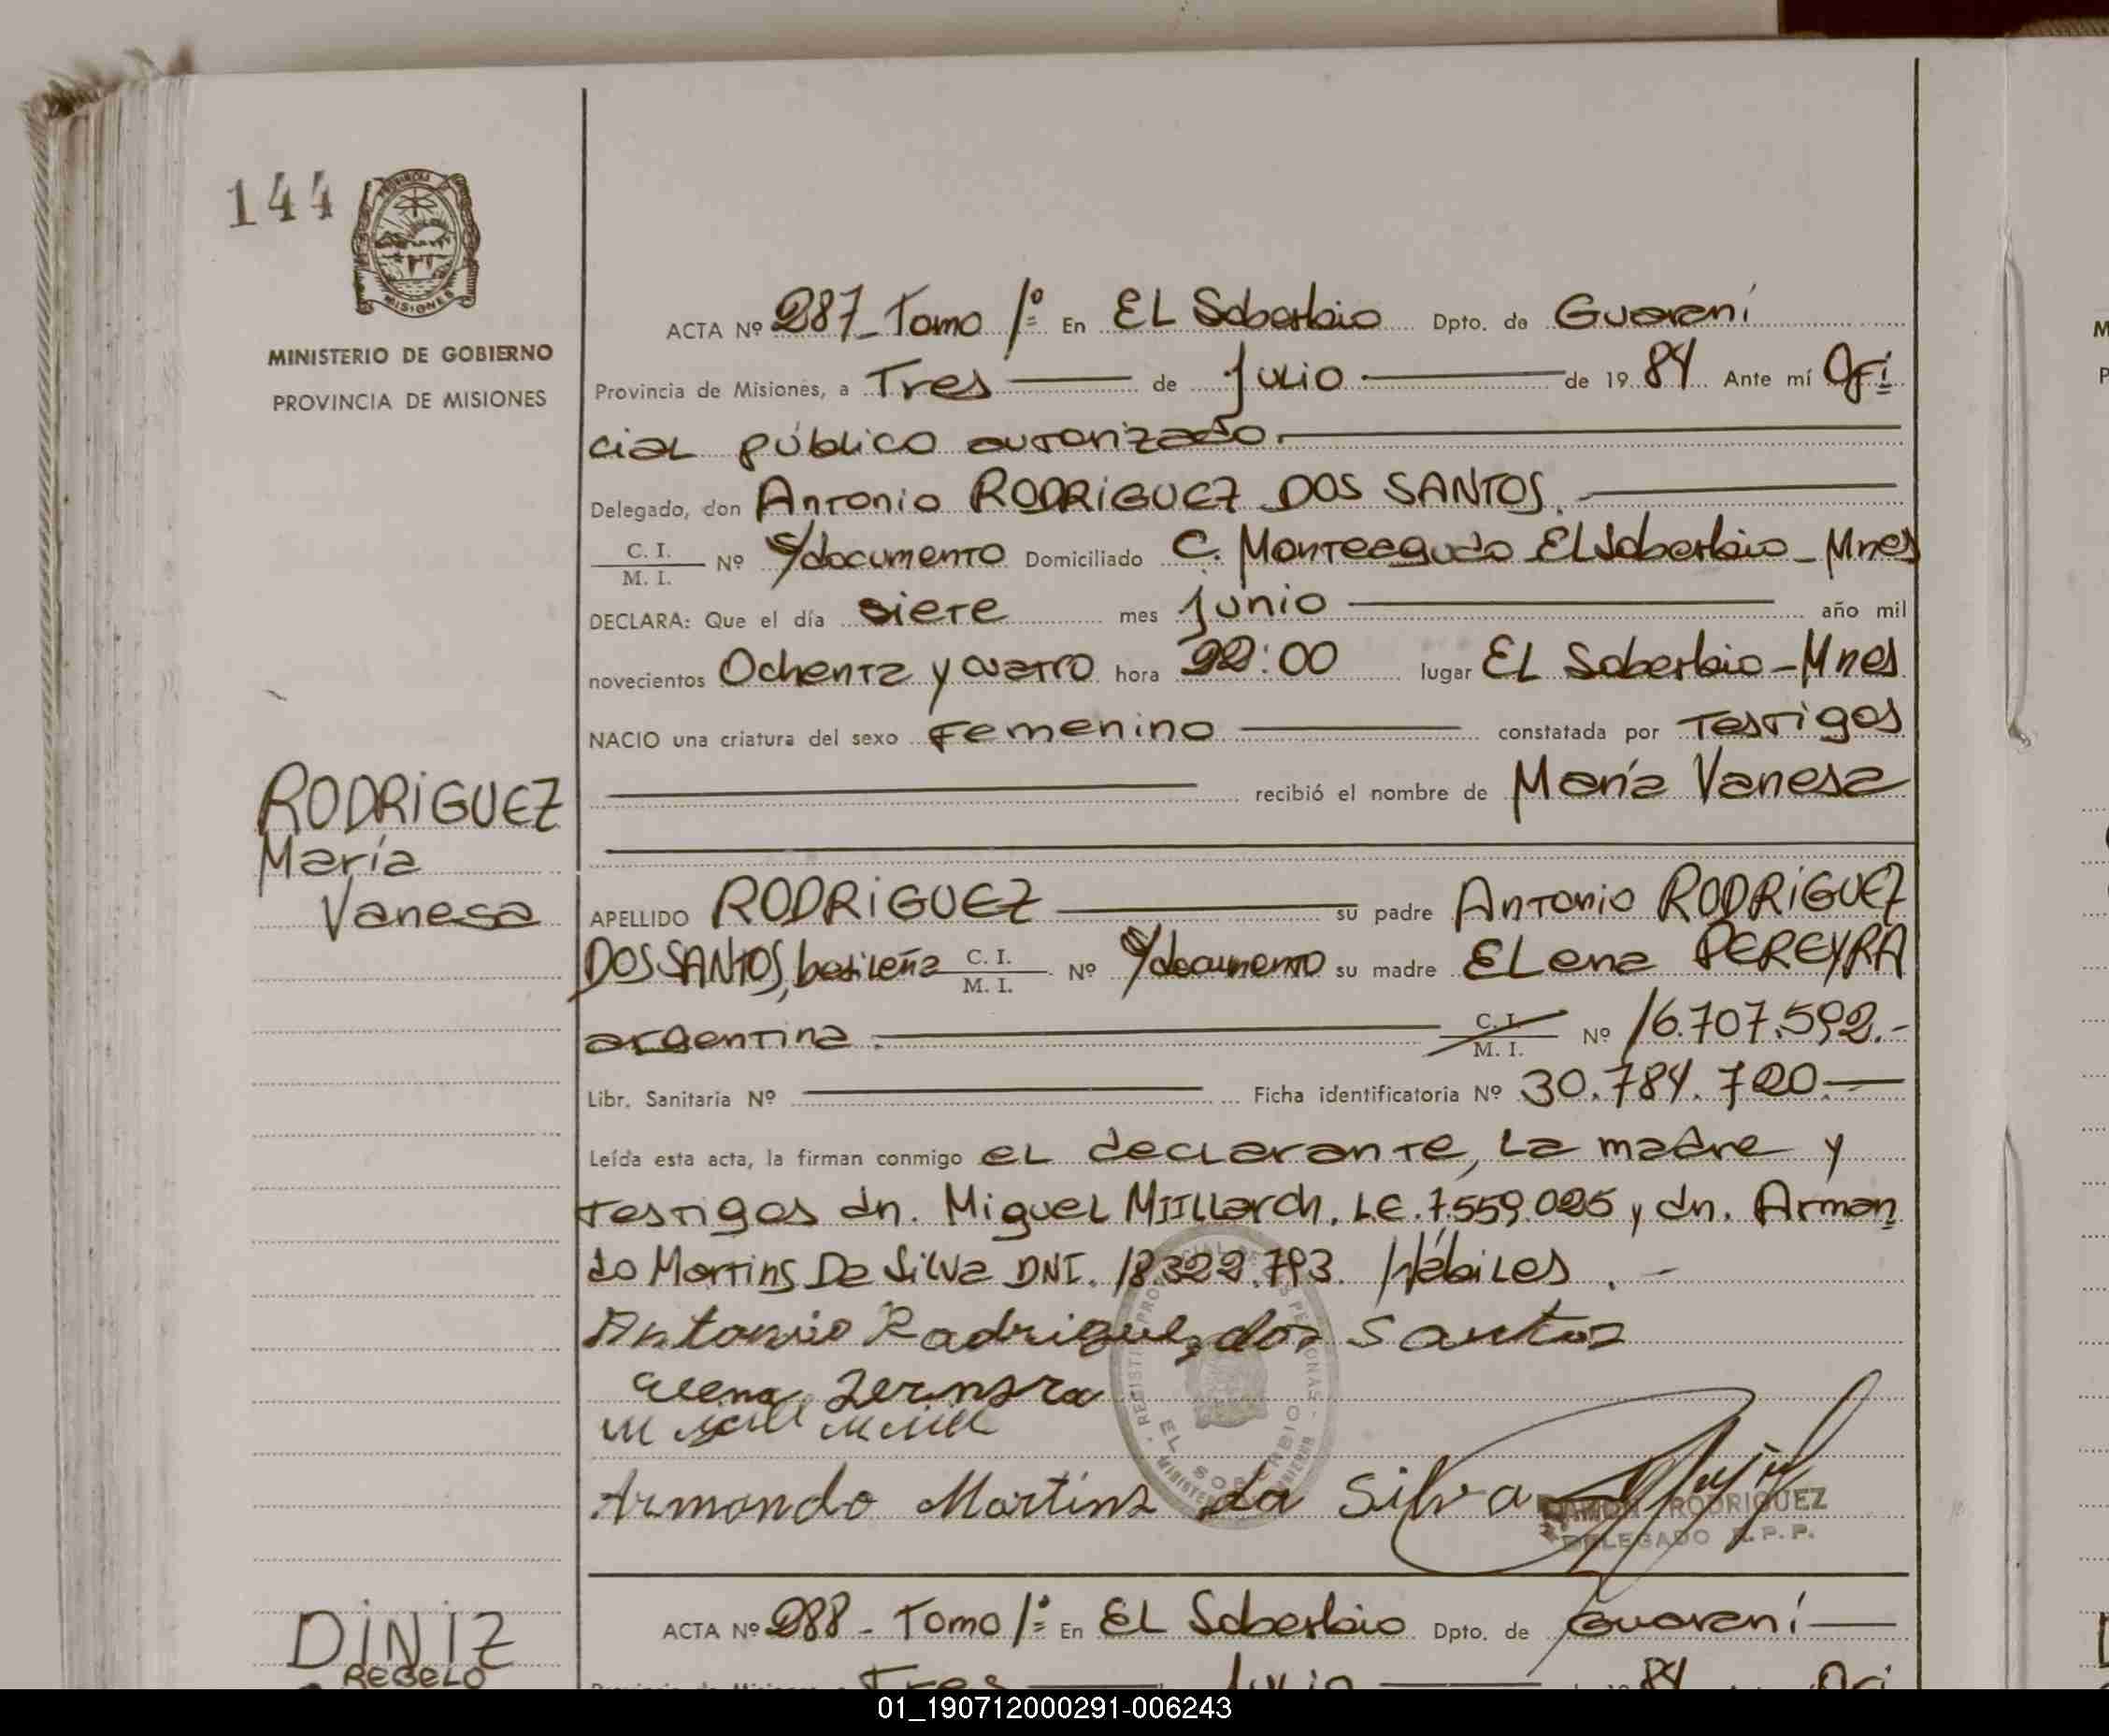 144
MISIONES
MINISTERIO DE GOBIERNO
PROVINCIA DE MISIONES
ACTA Nº 287_ Tomo 1º En EL Soberbio Dpto. de Guaraní
Provincia de Misiones, a Tres de Julio de 1984 Ante mí Ofi
cial público autorizado.
Delegado, don Antonio RODRIGUEZ DOS SANTOS.
C. I.
M. I. Nº S/documento Domiciliado C. Monteagudo EL Soberbio - Mnes
DECLARA: Que el día siete mes Junio año mil
novecientos Ochenta y cuatro hora 22:00 lugar EL Soberbio - Mnes
NACIO una criatura del sexo Femenino constatada por Testigos
recibió el nombre de María Vanesa
RODRIGUEZ
María
Vanesa
APELLIDO RODRIGUEZ su padre Antonio RODRIGUEZ
DOS SANTOS, C. I. M. I. Nº S/documento su madre ELena PEREYRA
argentina. C. I. M. I. Nº 16.707.592.-
Libr. Sanitaria Nº Ficha identificatoria Nº 30.784.720.
Leída esta acta, la firman conmigo el declarante, La madre y
Testigos dn. Miguel LE. 7.559.025 y dn. Arman
do Martins Da Silva DNI. 18.322.793. Hábiles. -
Antonio Radriguez dos Santos
Elena
Armando Martins da Silva
EL SOBERBIO
RAMON RODRIGUEZ
DELEGADO R.P.P.
ACTA Nº 288 - Tomo 1º En EL Soberbio Dpto. de Guaraní
DINIZ
REBELO
Tres Julio 84 Ofi
01_190712000291-006243